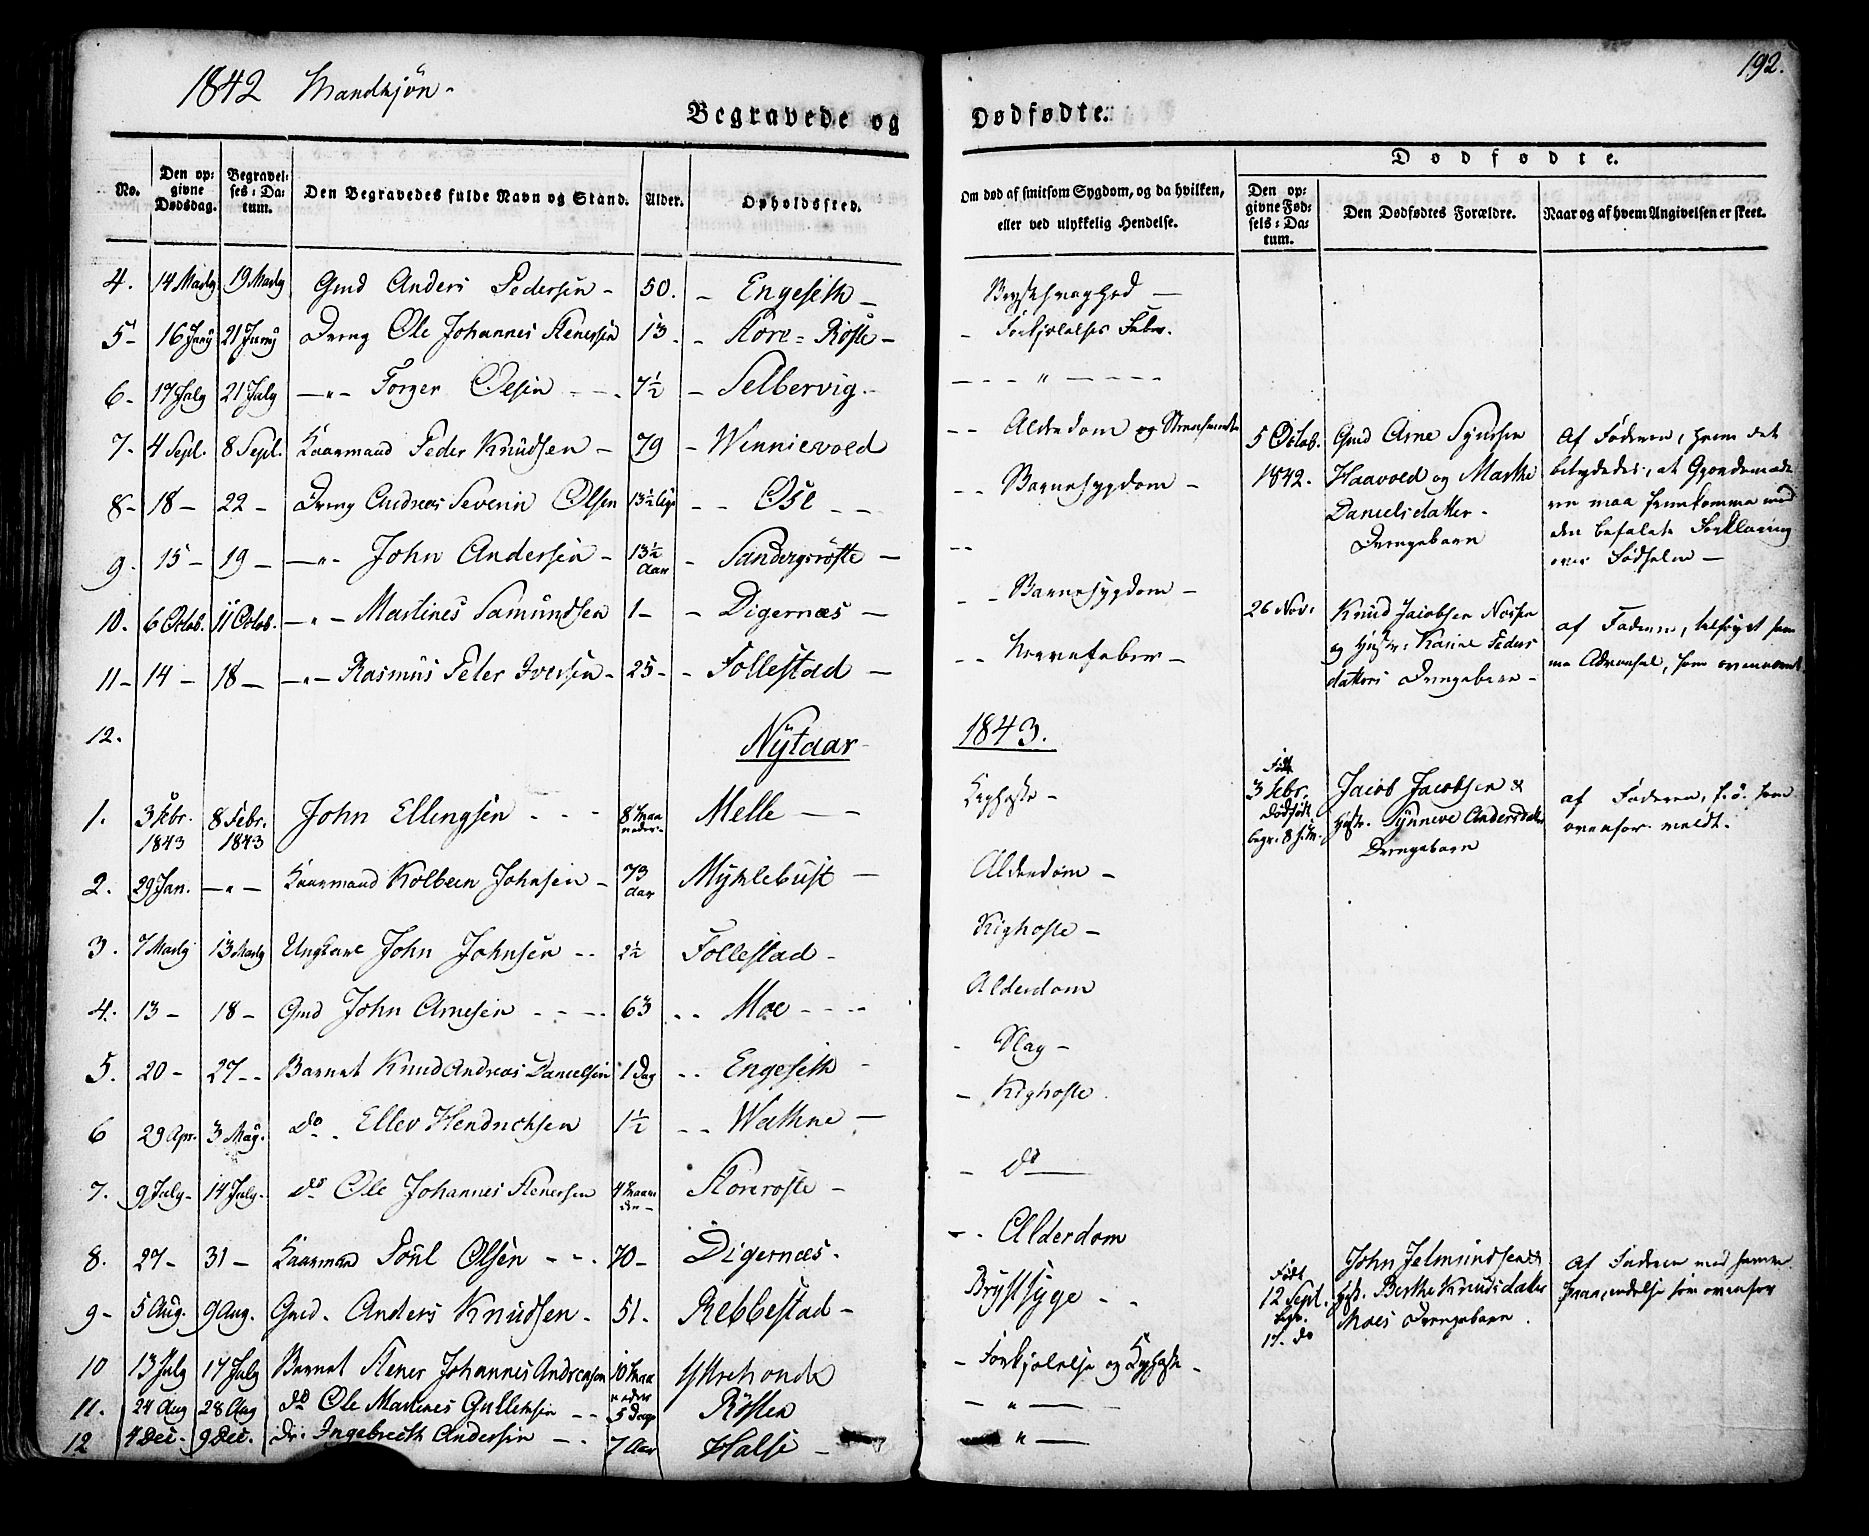 192.
1842 Mandkjøn -
Begravede og Dødfødte.
No.
Den opgivne Dødsdag.
Begravelses-Datum.
Den Begravedes fulde Navn og Stand.
Alder.
Opholdssted.
Om død af smitsom Sygdom, og da hvilken, eller ved ulykkelig Hendelse.
Dødfødte.
Den opgivne Fødsels-Datum.
Den Dødfødtes Forældre.
Naar og af hvem Angivelsen er skeet.
4. 14 Marty 19 Marty Gmd Anders Pedersen - 50. - Engeseth - Brystsvaghed -
5 - 16 Juny 21 Juny Dreng Ole Johannes Stenersen 13. - Store-Røste - - Forkjølelses Feber.
6 - 17 July 21 July -"- Torger Olsen - - - 7½ - Selbervig - - - - " - - - -
7. 4 Sept. 8 Sept. Kaarmand Peder Knudsen - 79 - Winnievold - - Alderdom og
8 - 18 - 22 - Dreng Andreas Severin Olsen 13½ - - Ose - - - - Barnesygdom -
9. 15 - 19 - -"- John Andersen - 13½ Aar - Sandergsrøste - - -
10. 6 Octob. 11 Octob. -"- Martines Samundsen 1 - - Digernæs - - - Barnesygdom -
11 - 14 - 18 - -"- Rasmus Peter Iversen - 25 - - Follestad - - - Nervefeber -
12.
5 Octob. 1842.
Gmd Arne Synesen
Haavold og Marthe
Danielsdatter -
Drengebarn
Af Faderen, hvem det
betydedes, at Gjordemode
ren maa fremkomme med
den befalede Forklaring
over Fødselen -
26 Nov.
Knud Jacobsen
og Hustr: Karine Peders
datters Drengebarn -
af Faderen, som ovenomt
Nytaar 1843.
1. 3 Febr. 1843 8 Febr. 1843 John Ellingsen - - - 8 Maaneder - Melle - - Kighoste -
2. 29 Jan. -"- Kaarmand Kolbeen Johnsen - 73 Aar Myklebust - Alderdom -
3. 7 Marty 13 Marty Ungkarl John Johnsen - - 2½ Follestad - Kighoste -
4. 13 - 18 - Gmd John Arnesen - - - - 63 - - Moe - - - - Alderdom
5. 20 - 27 - - Barnet Knud Andreas Danielsen 1 Dag - - Engeseth - - Slag -
6 29 Apr. 3 May. do Ellev Hendrichsen 1½ - - Wathne - - Kighoste.
7. 9 July - 14 July - do Ole Johannes Stenersen 4 Maaneder - Storerøste - - do -
8. 27 - 31 - Kaarmand Poul Olsen - - - 70 - Digernæs - - - Alderdom
9 - 5 Aug. 9 Aug. Gmd. Anders Knudsen - 51. Rebbestad - Brystsyge - -
10 13 July 17 July Barnet Stener Johannes Andreasen 10 Maaneder Ytrehovde - Forkjølelse og Kighoste -
11. 24 Aug 28 Aug do Ole Martines Gullensen - - 5 Dage Røsten - " -
12 4 Dec. 9 Dec. do: Ingebrecth Andersen - - 7 Aar Halse - - " -
Født
3 Febr.
dødfødt
begr. 8
Jacob Jacobsen &
Hstr. Synneve Andersdatter
Drengebarn
af Faderen, som
ovenfor meldt.
Født
12 Sept.
begr.
17. do
John Jelmundsen &
Hst. Berthe Knudsdatter
Moes Drengebarn.
Af Faderen med samme
som ovenfor